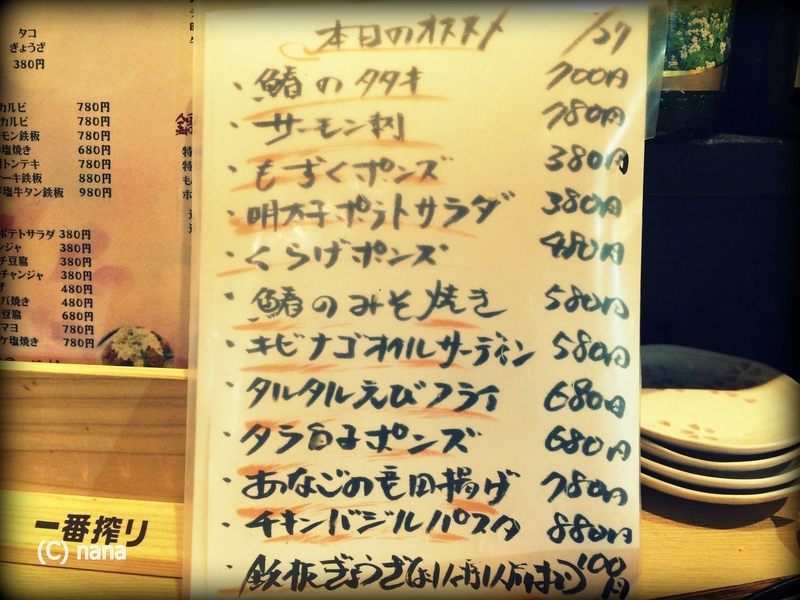 本日のオススメ /27
・鰆のタタキ 700円
・サーモン刺 780円
・もずくポンズ 380円
・明太子ポテトサラダ 380円
・くらげポンズ 480円
・鰆のみそ焼き 580円
・キビナゴオイルサーディン 580円
・タルタルえびフライ 680円
・タラ白子ポンズ 680円
・あなごの竜田揚げ 780円
・チキンバジルパスタ 880円
・鉄板ぎょうざ 100円
タコ
ぎょうざ
380円
カルビ 780円
カルビ 780円
モン鉄板 780円
塩焼き 680円
トンテキ 780円
ーキ鉄板 880円
塩牛タン鉄板 980円
ポテトサラダ 380円
ンジャ 380円
チ豆腐 380円
チャンジャ 380円
480円
バ焼き 480円
豆腐 680円
マヨ 780円
ケ塩焼き 780円
一番搾り
(C) nana